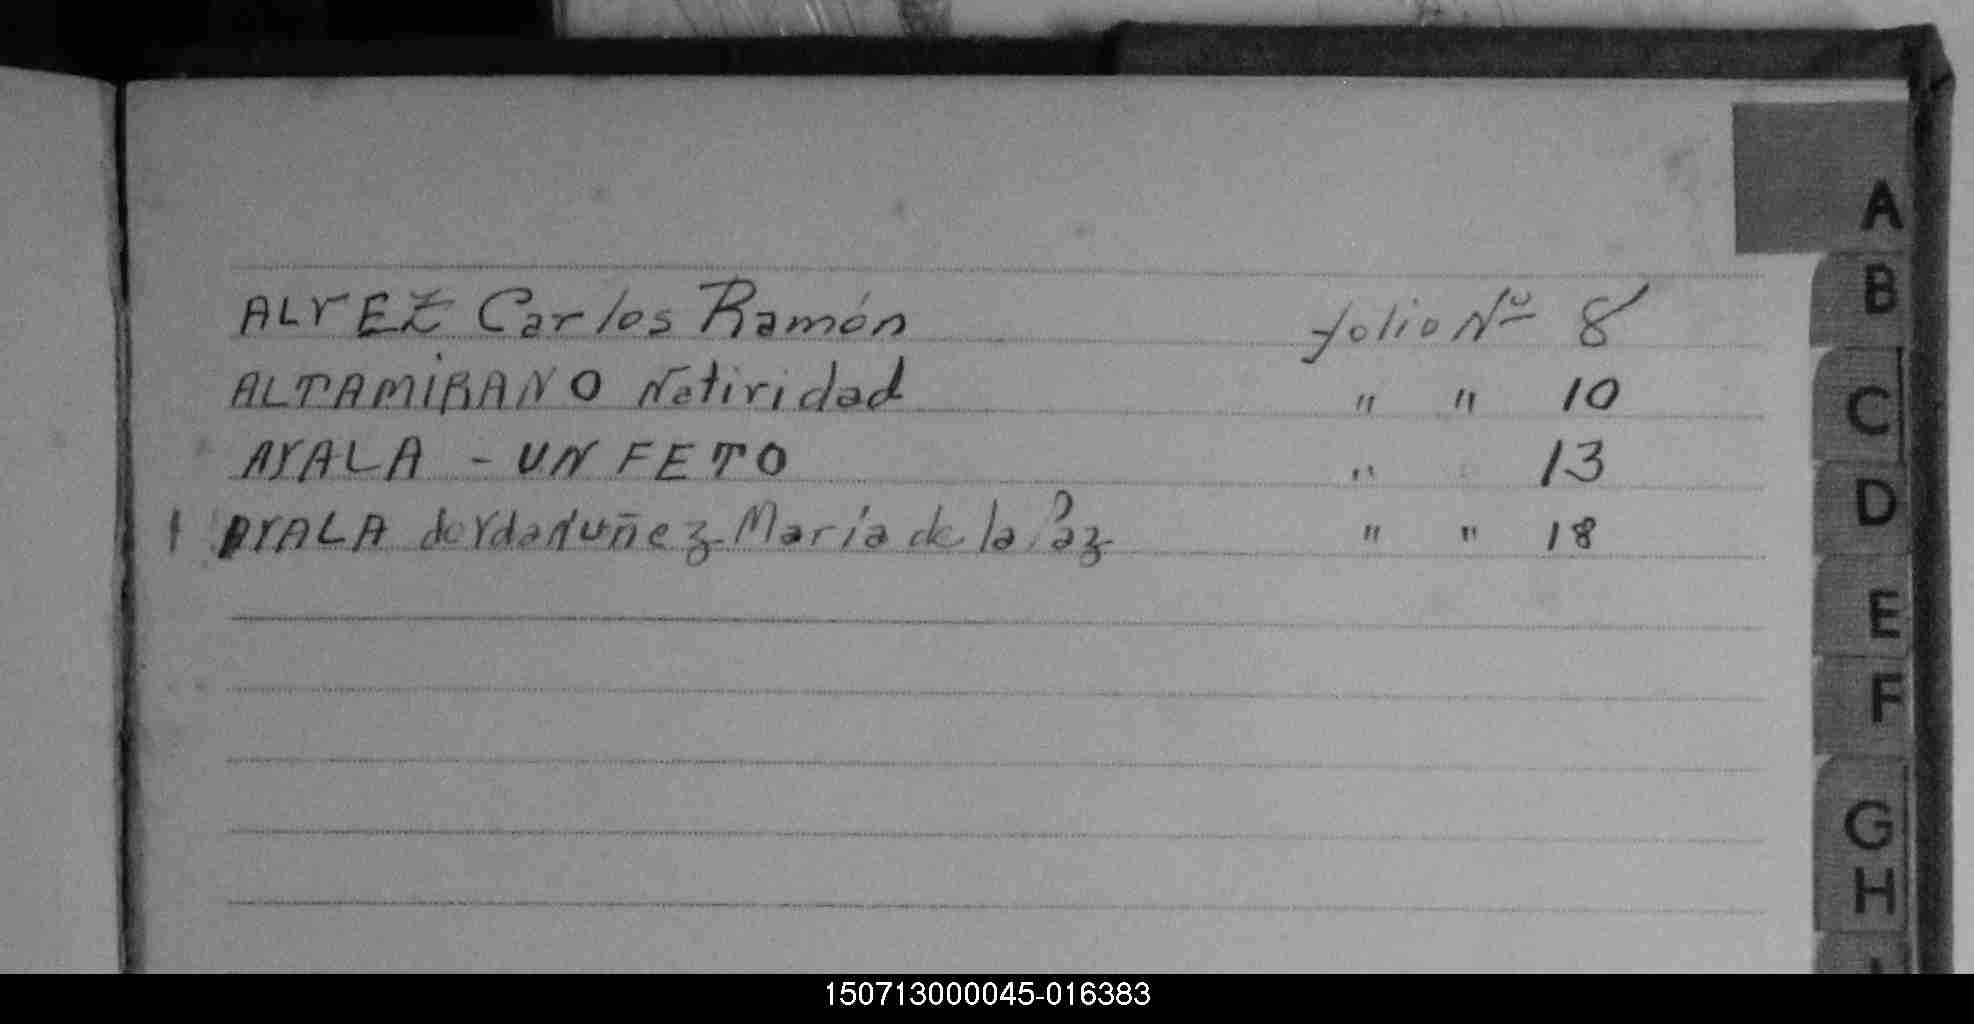 ALVEZ Carlos Ramón folio Nº 8
ALTAMIRANO Natividad " " 10
AYALA - UN FETO " 13
AYALA de Vda Nuñez María de la Paz " " 18
A
B
C
D
E
F
G
H
150713000045-016383